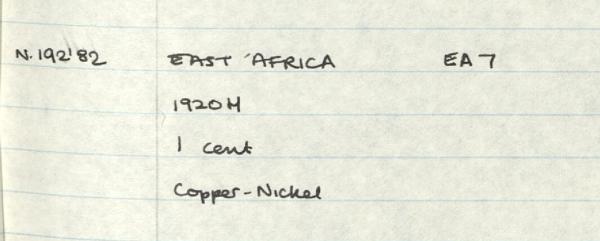 N.192'82 EAST AFRICA EA 7
1920H
1 cent
Copper-Nickel